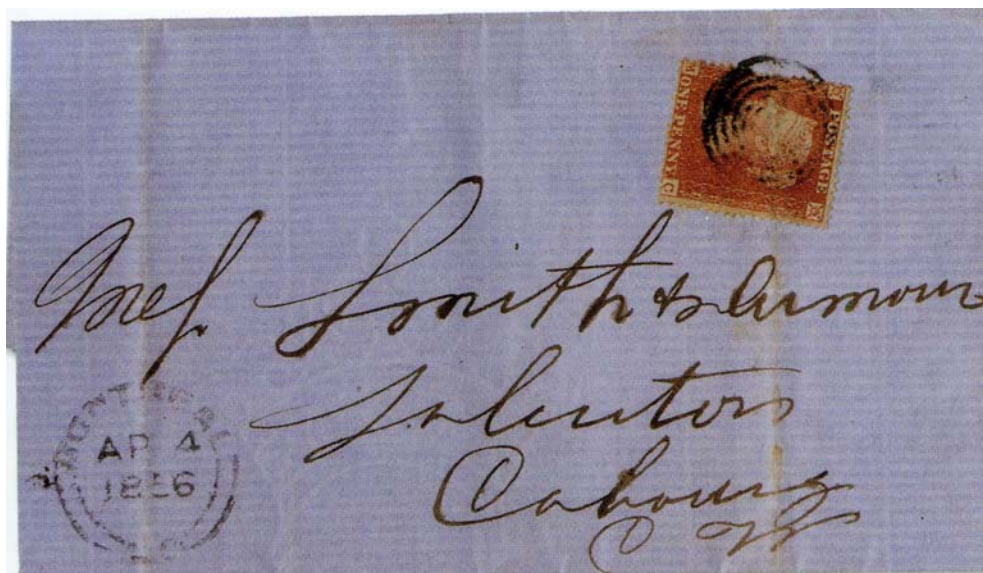 POSTAGE
ONE PENNY
Mess. Smith & Armour
Solicitors
Cobourg
C W
MONTREAL
AP 4
1856